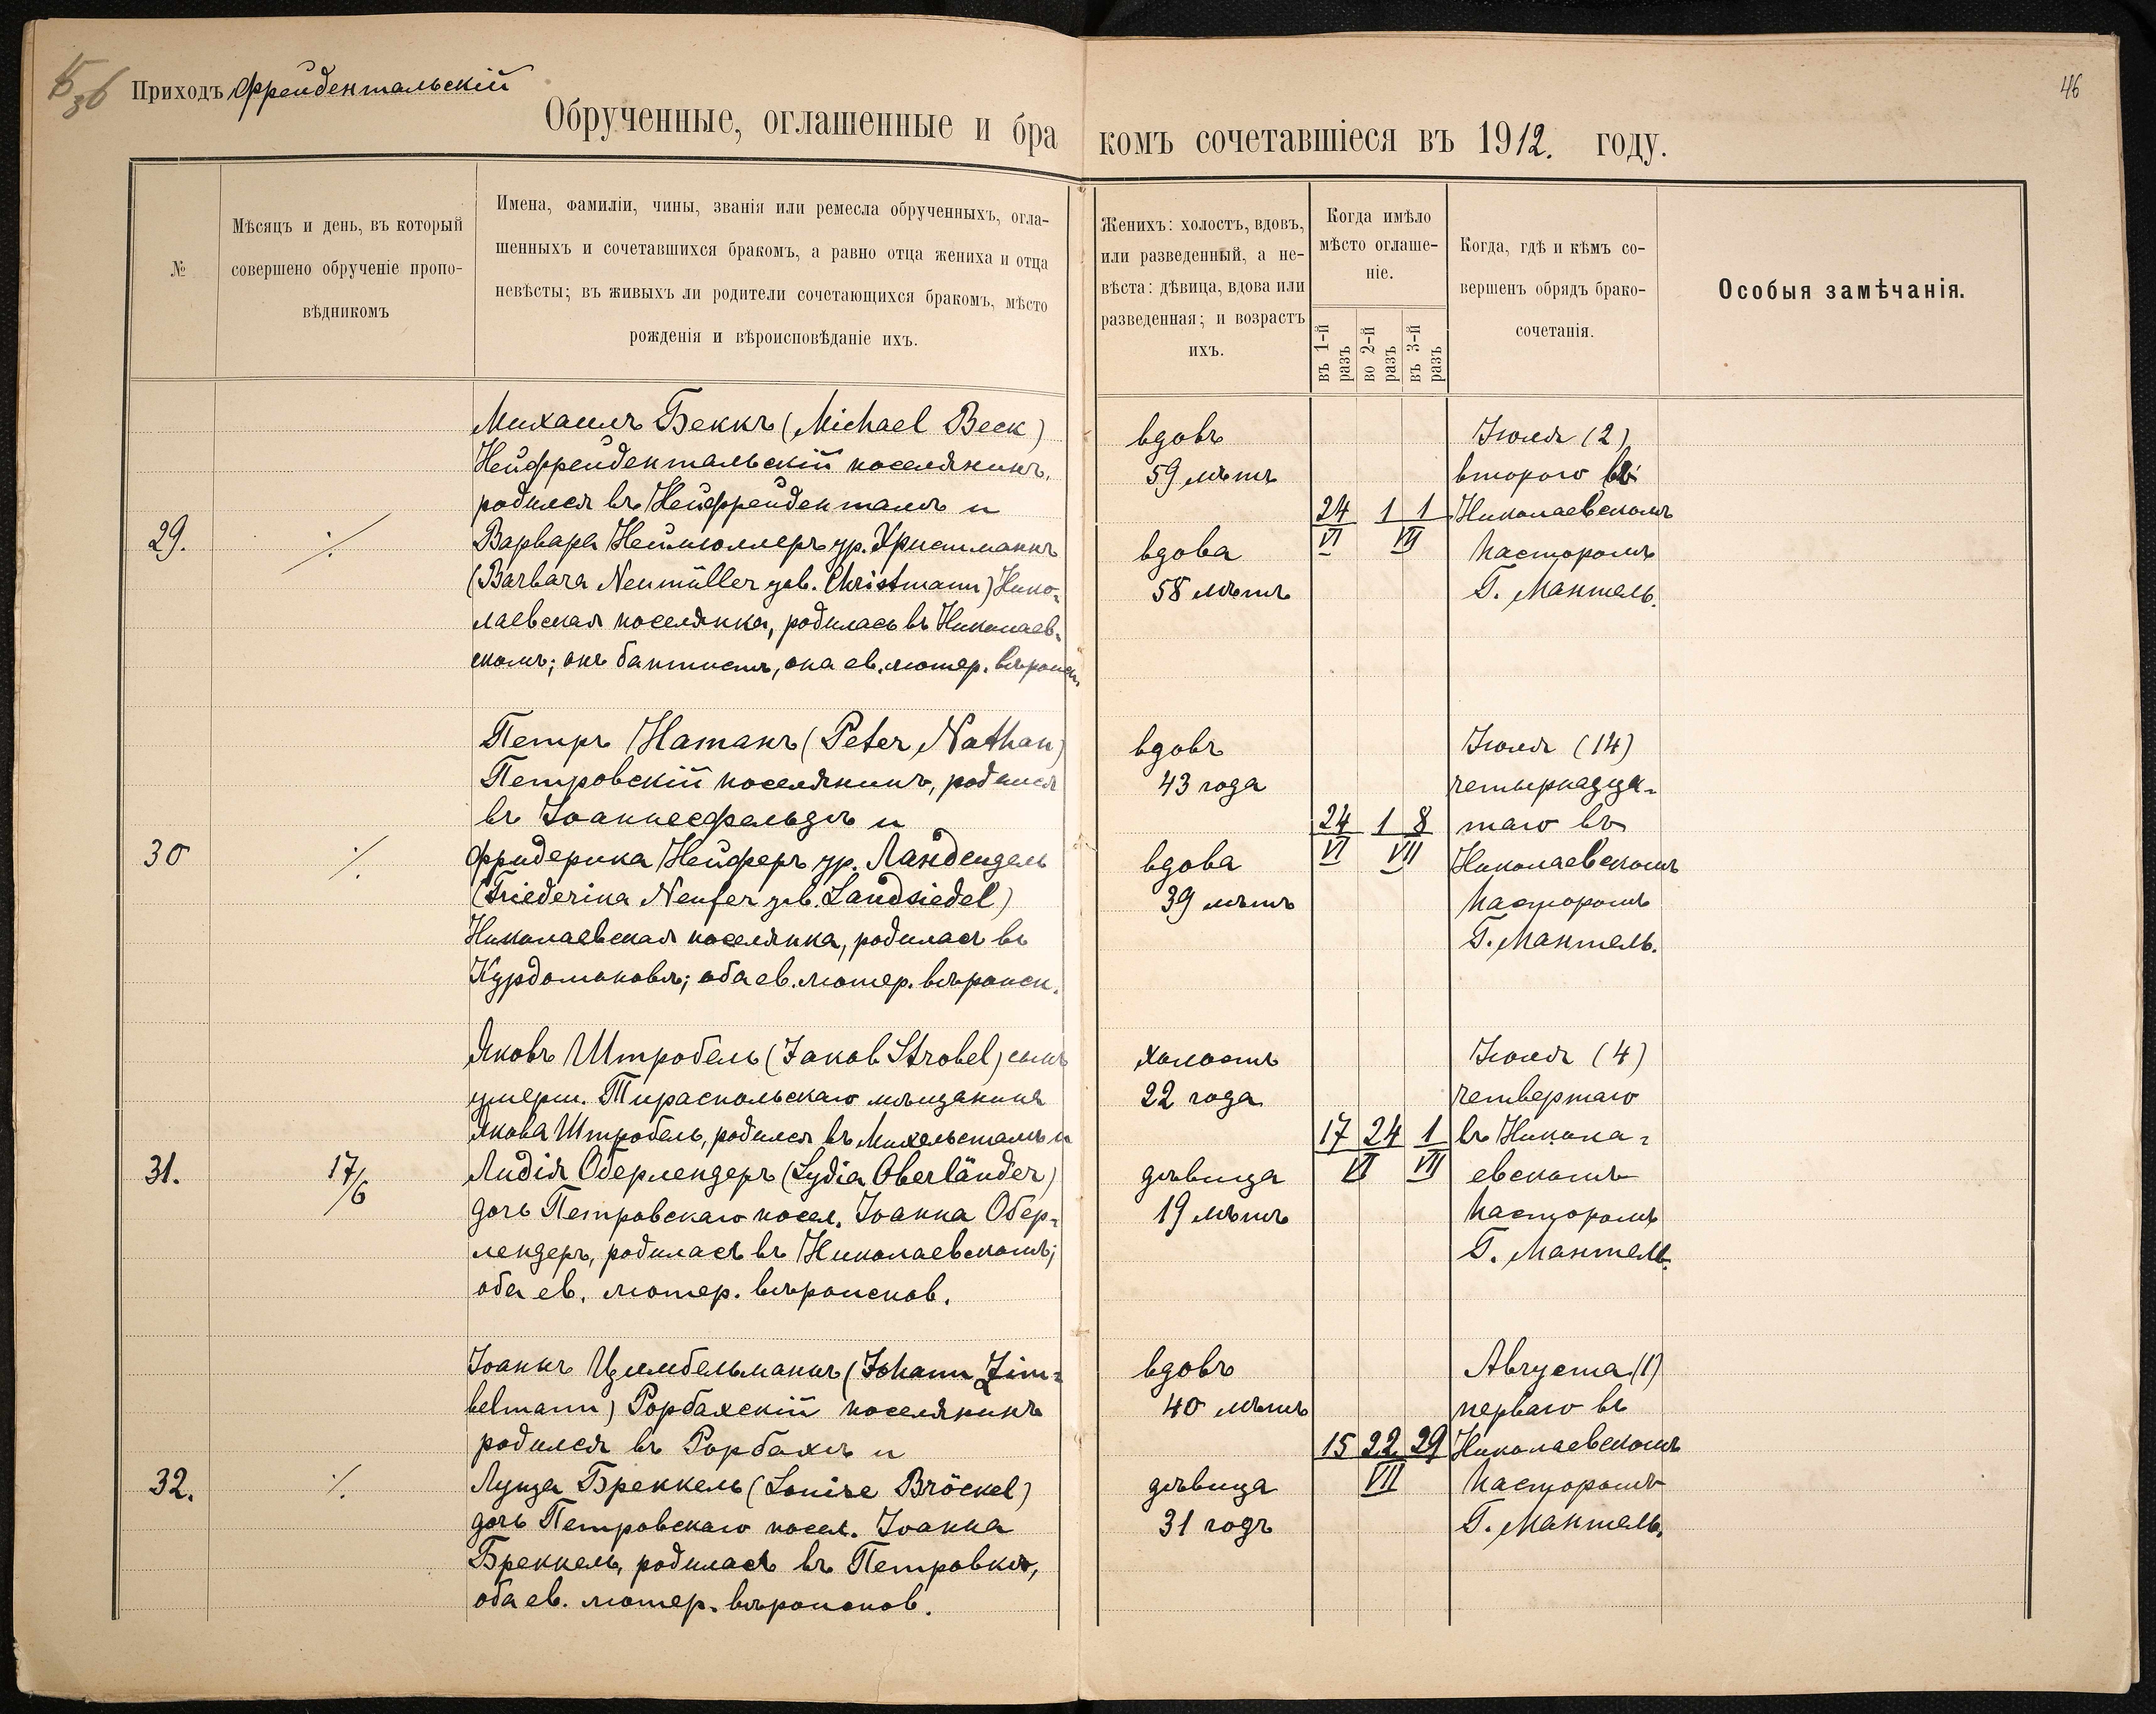 Приходъ Фрейдентальскій
46
Обрученные, оглашенные и бракомъ сочетавшіеся въ 1912. году.
№
Мѣсяцъ и день, въ который
совершено обрученіе пропо-
вѣдникомъ
Имена, фамиліи, чины, званія или ремесла обрученныхъ, огла-
шенныхъ и сочетавшихся бракомъ, а равно отца жениха и отца
невѣсты; въ живыхъ ли родители сочетающихся бракомъ, мѣсто
рожденія и вѣроисповѣданіе ихъ.
Женихъ: холостъ, вдовъ,
или разведенный, а не-
вѣста: дѣвица, вдова или
разведенная; и возрастъ
ихъ.
Когда имѣло
мѣсто оглаше-
ніе.
въ 1-й разъ
во 2-й разъ
въ 3-й разъ
Когда, гдѣ и кѣмъ со-
вершенъ обрядъ брако-
сочетанія.
Особыя замѣчанія.
29.
./.
Михаилъ Беккъ (Michael Beck)
Нейфрейдентальскій поселянинъ,
родился въ Нейфрейденталѣ и
Варвара Неймюллеръ ур. Христманнъ
(Barbara Neumüller geb. Christmann) Нико-
лаевская поселянка, родилась въ Николаев-
скомъ; онъ баптистъ, она ев. лютер. вѣроисп.
вдовъ
59 лѣтъ
вдова
58 лѣтъ
24 1 1
VI VII
Іюля (2)
второго въ
Николаевскомъ
пасторомъ
Г. Мантель.
30
./.
Петръ Натанъ (Peter Nathan)
Петровскій поселянинъ, родился
въ Іоаннесфельдѣ и
Фридерика Нейферъ ур. Ландсидель
(Friederika Neufer geb. Landsiedel)
Николаевская поселянка, родилась въ
Курдомановѣ; оба ев. лютер. вѣроисп.
вдовъ
43 года
вдова
39 лѣтъ
24 1 8
VI VII
Іюля (14)
четырнадца-
таго въ
Николаевскомъ
пасторомъ
Г. Мантель.
31.
17/6
Яковъ Штробель (Jakob Strobel) сынъ
умерш. Тираспольскаго мѣщанина
Якова Штробель, родился въ Михельсталѣ и
Лидія Оберлендеръ (Lydia Oberländer)
дочь Петровскаго посел. Іоанна Обер-
лендеръ, родилась въ Николаевскомъ;
оба ев. лютер. вѣроисков.
холостъ
22 года
дѣвица
19 лѣтъ
17 24 1
VI VII
Іюля (4)
четвертаго
въ Никола-
евскомъ
пасторомъ
Г. Мантель.
32.
./.
Іоаннъ Цимбельманнъ (Johann Zim-
belmann) Рорбахскій поселянинъ
родился въ Рорбахѣ и
Луиза Бреккель (Louise Bröckel)
дочь Петровскаго посел. Іоанна
Бреккель, родилась въ Петровкѣ,
оба ев. лютер. вѣроисков.
вдовъ
40 лѣтъ
дѣвица
31 годъ
15 22 29
VII
Августа (1)
перваго въ
Николаевскомъ
пасторомъ
Г. Мантель.